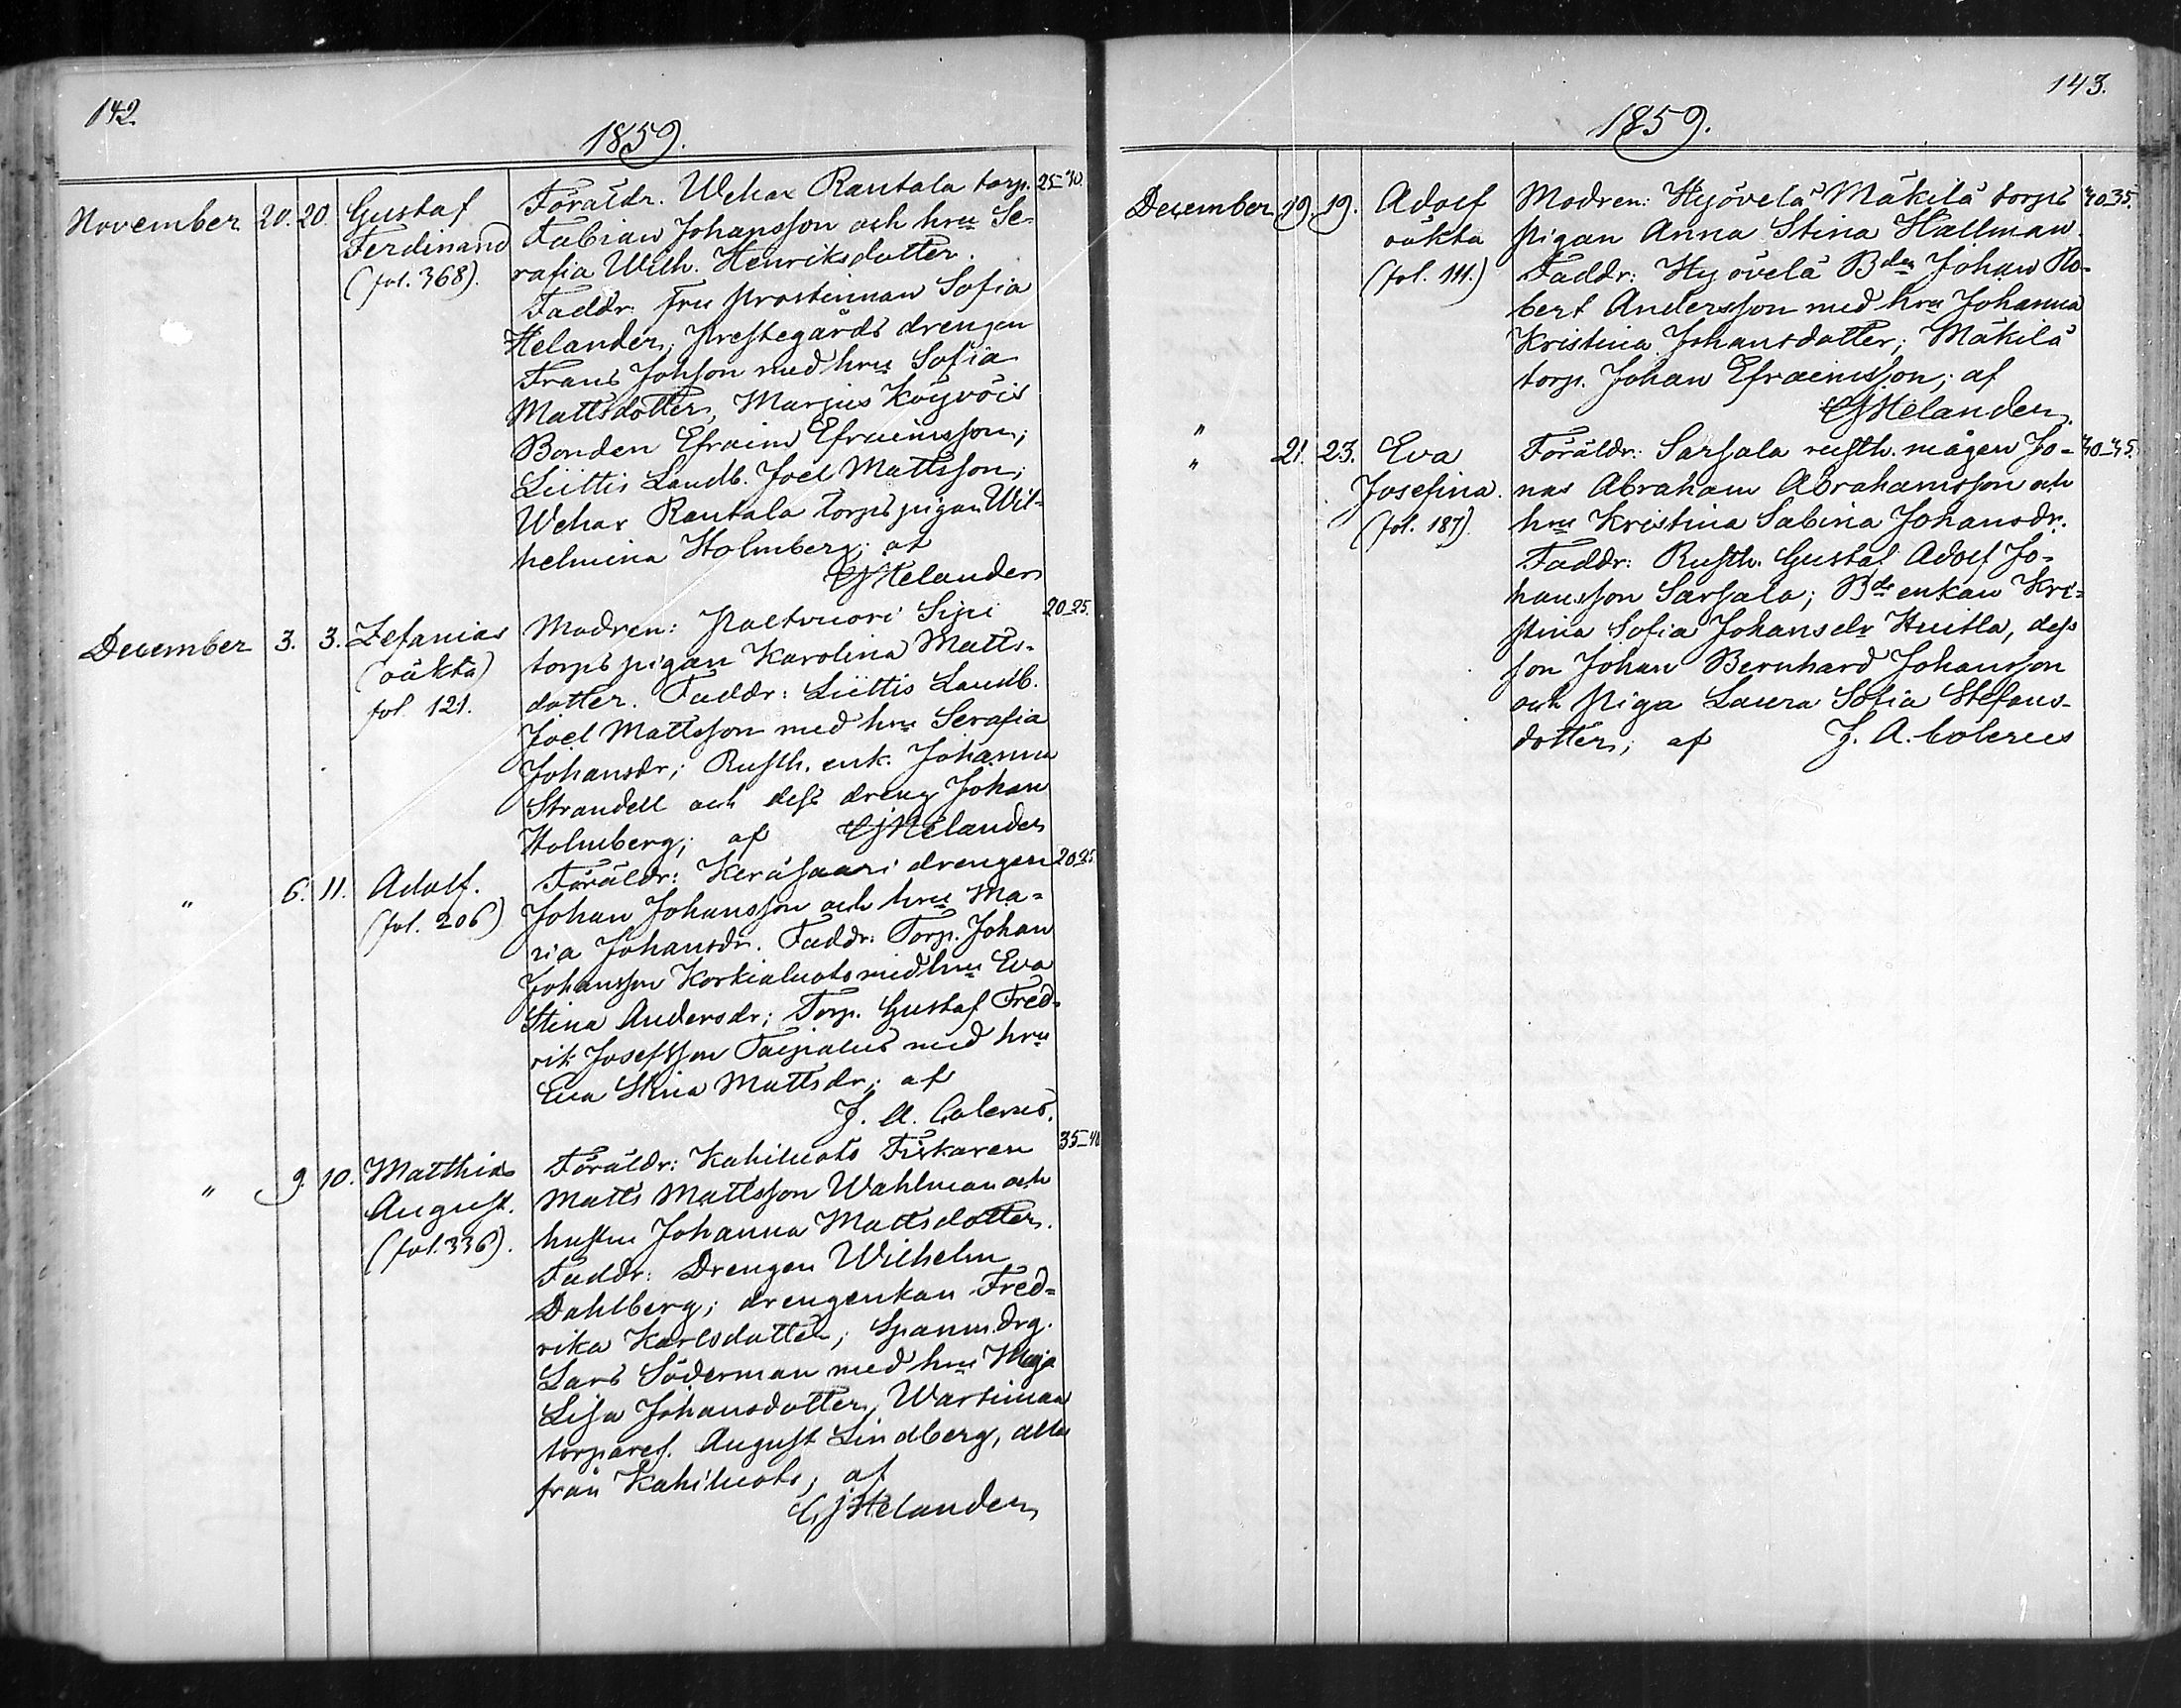 142.
1859.
November 20. 20. Gustaf Föräldr. Wehax Rantala torp. 25-30.
Ferdinand Fabian Johansson och hru Se-
(fol. 368). rafia Wilh. Henriksdotter.
Faddr. Fru Prostinnan Sofia
Helander, Prestegårds drengen
Frans Johsson med hru Sofia
Mattsdotter, Marjus Köyvöis
Bonden Efraim Efraimsson;
Liittis Landb. Joel Mattsson;
Wehax Rantala torps pigan Wil-
helmina Holmberg; af
CJHelander
December 3. 3. Zefanias Modren: Paetvuori Sipi 20-25.
(oäkta) torps pigan Karolina Matts-
fol. 121. dotter. Faddr: Liittis Landb.
Joel Mattsson med hru Serafia
Johansdr; Rusth. enk. Johanna
Strandell och dess dreng Johan
Holmberg; af CJHelander
" 6. 11. Adolf. Föräldr: Keräsaari drengen 20-25
(fol. 206) Johan Johansson och hru Ma-
ria Johansdr. Faddr: Torp. Johan
Johansson Korkialuoto med hru Eva
Stina Andersdr; Torp. Gustaf Fred-
rik Josefsson Taipalus med hru
Eva Stina Mattsdr; af
J. A. Colerus.
" 9. 10. Matthias Föräldr: Kahiluoto Fiskaren 35-40
August. Matts Mattsson Wahlman och
(fol. 336). hustru Johanna Mattsdotter.
Faddr: Drengen Wilhelm
Dahlberg; drengenkan Fred-
rika Karlsdotter; Spanm. drg.
Lars Söderman med hru Maja
Lisa Johansdotter,
torpares. August Lindberg, alla
från Kahiluoto; af
CJHelander
143.
1859.
December 19. 19. Adolf Modren: Hyövelä Mäkilä torps 30-35.
oäkta pigan Anna Stina Hallman.
(fol. 111.) Faddr: Hyövelä Bden Johan Ro-
bert Andersson med hru Johanna
Kristina Johansdotter; Mäkilä
torp. Johan Efraimsson; af
" CJHelander
" 21. 23. Eva Föräldr: Sarsala rusth. mågen Jo- 30-35.
Josefina. nas Abraham Abrahamsson och
(fol. 187). hru Kristina Sabina Johansdr.
Faddr: Rusth. Gustaf Adolf Jo-
hansson Sarsala; Bde enkan Kri-
stina Sofia Johansdr Huitla, dess
son Johan Bernhard Johansson
och Piga Laura Sofia Stefans-
dotter; af J. A. Colerus